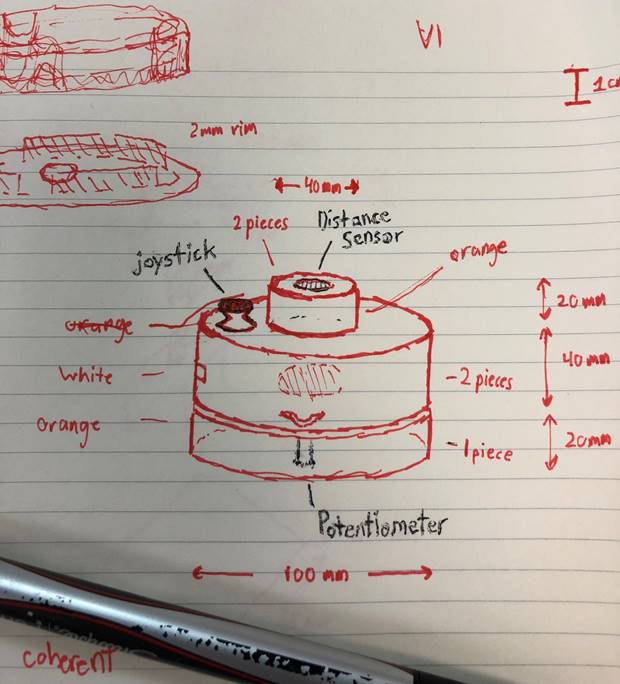 VI
1cm
2mm rim
40mm
2 pieces
Distance
Sensor
joystick
orange
20mm
orange
40mm
white
-2 pieces
orange
-1piece
20mm
Potentiometer
100 mm
coherent